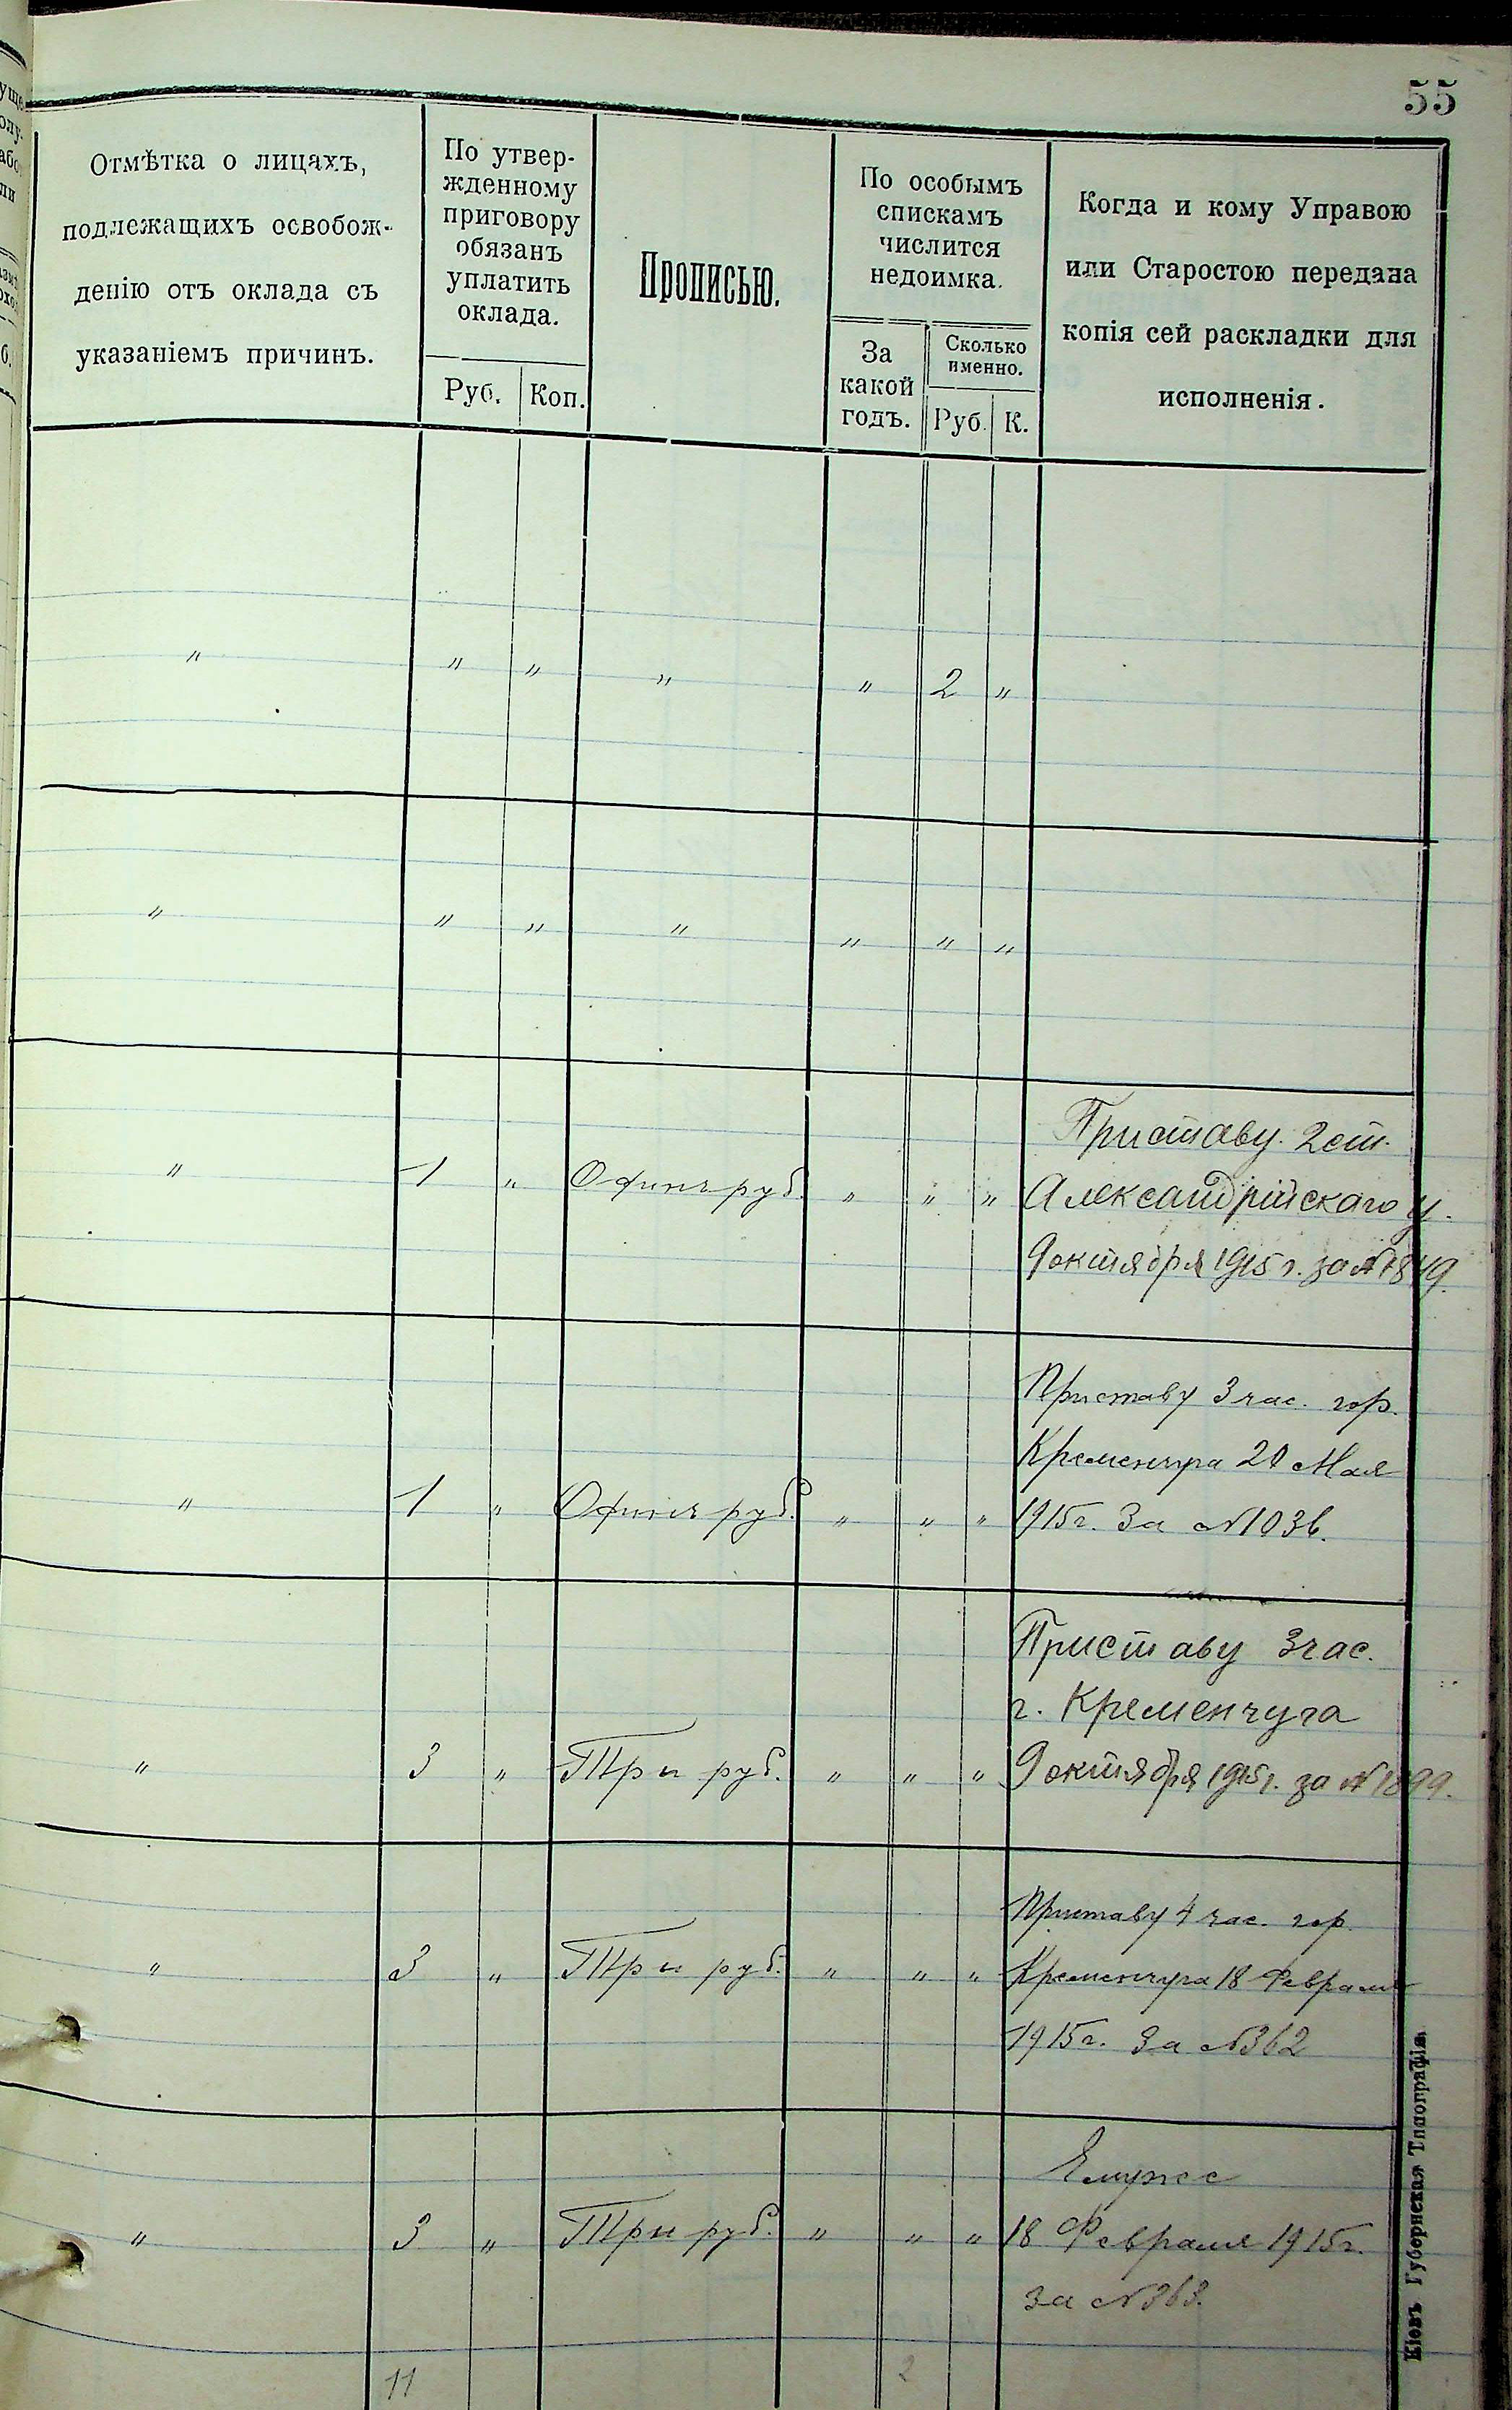 55
Отмѣтка о лицахъ,
подлежащихъ освобож-
денію отъ оклада съ
указаніемъ причинъ.
По утвер-
жденному
приговору
обязанъ
уплатить
оклада.
Руб.
Коп.
Прописью.
По особымъ
спискамъ
числится
недоимка.
За
какой
годъ.
Сколько
именно.
Руб.
К.
Когда и кому Управою
или Старостою передана
копія сей раскладки для
исполненія.
" " " " " 2 "
" " " " " " "
" 1 " Одинъ руб. " " "
Приставу 2 ст.
Александрійскаго у.
9 октября 1915 г. за №1849.
" 1 " Одинъ руб. " " "
Приставу 3 час. гор.
Кременчуга 20 Мая
1915 г. За №1036.
" 3 " Три руб. " " "
Приставу 3 час.
г. Кременчуга
9 октября 1915 г. за №1899.
" 3 " Три руб. " " "
Приставу 4 час. гор.
Кременчуга 18 Февраля
1915 г. За №362
" 3 " Три руб. " " "
Ему же
18 Февраля 1915 г.
за №363.
11 2
Кіевъ Губернская Типографія.